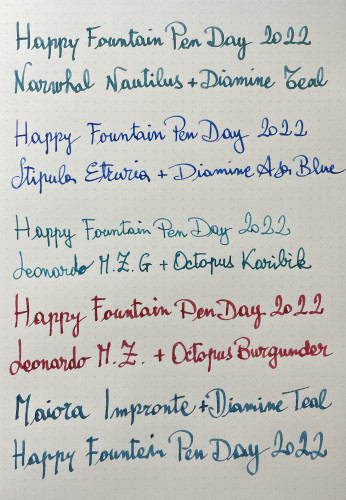 Happy Fountain Pen Day 2022
Narwhal Nautilus + Diamine Teal
Happy Fountain Pen Day 2022
Stipula Etruria + Diamine Asa Blue
Happy Fountain Pen Day 2022
Leonardo M.Z.G + Octopus Karibik
Happy Fountain Pen Day 2022
Leonardo M.Z. + Octopus Burgunder
Maiora Impronte + Diamine Teal
Happy Fountain Pen Day 2022